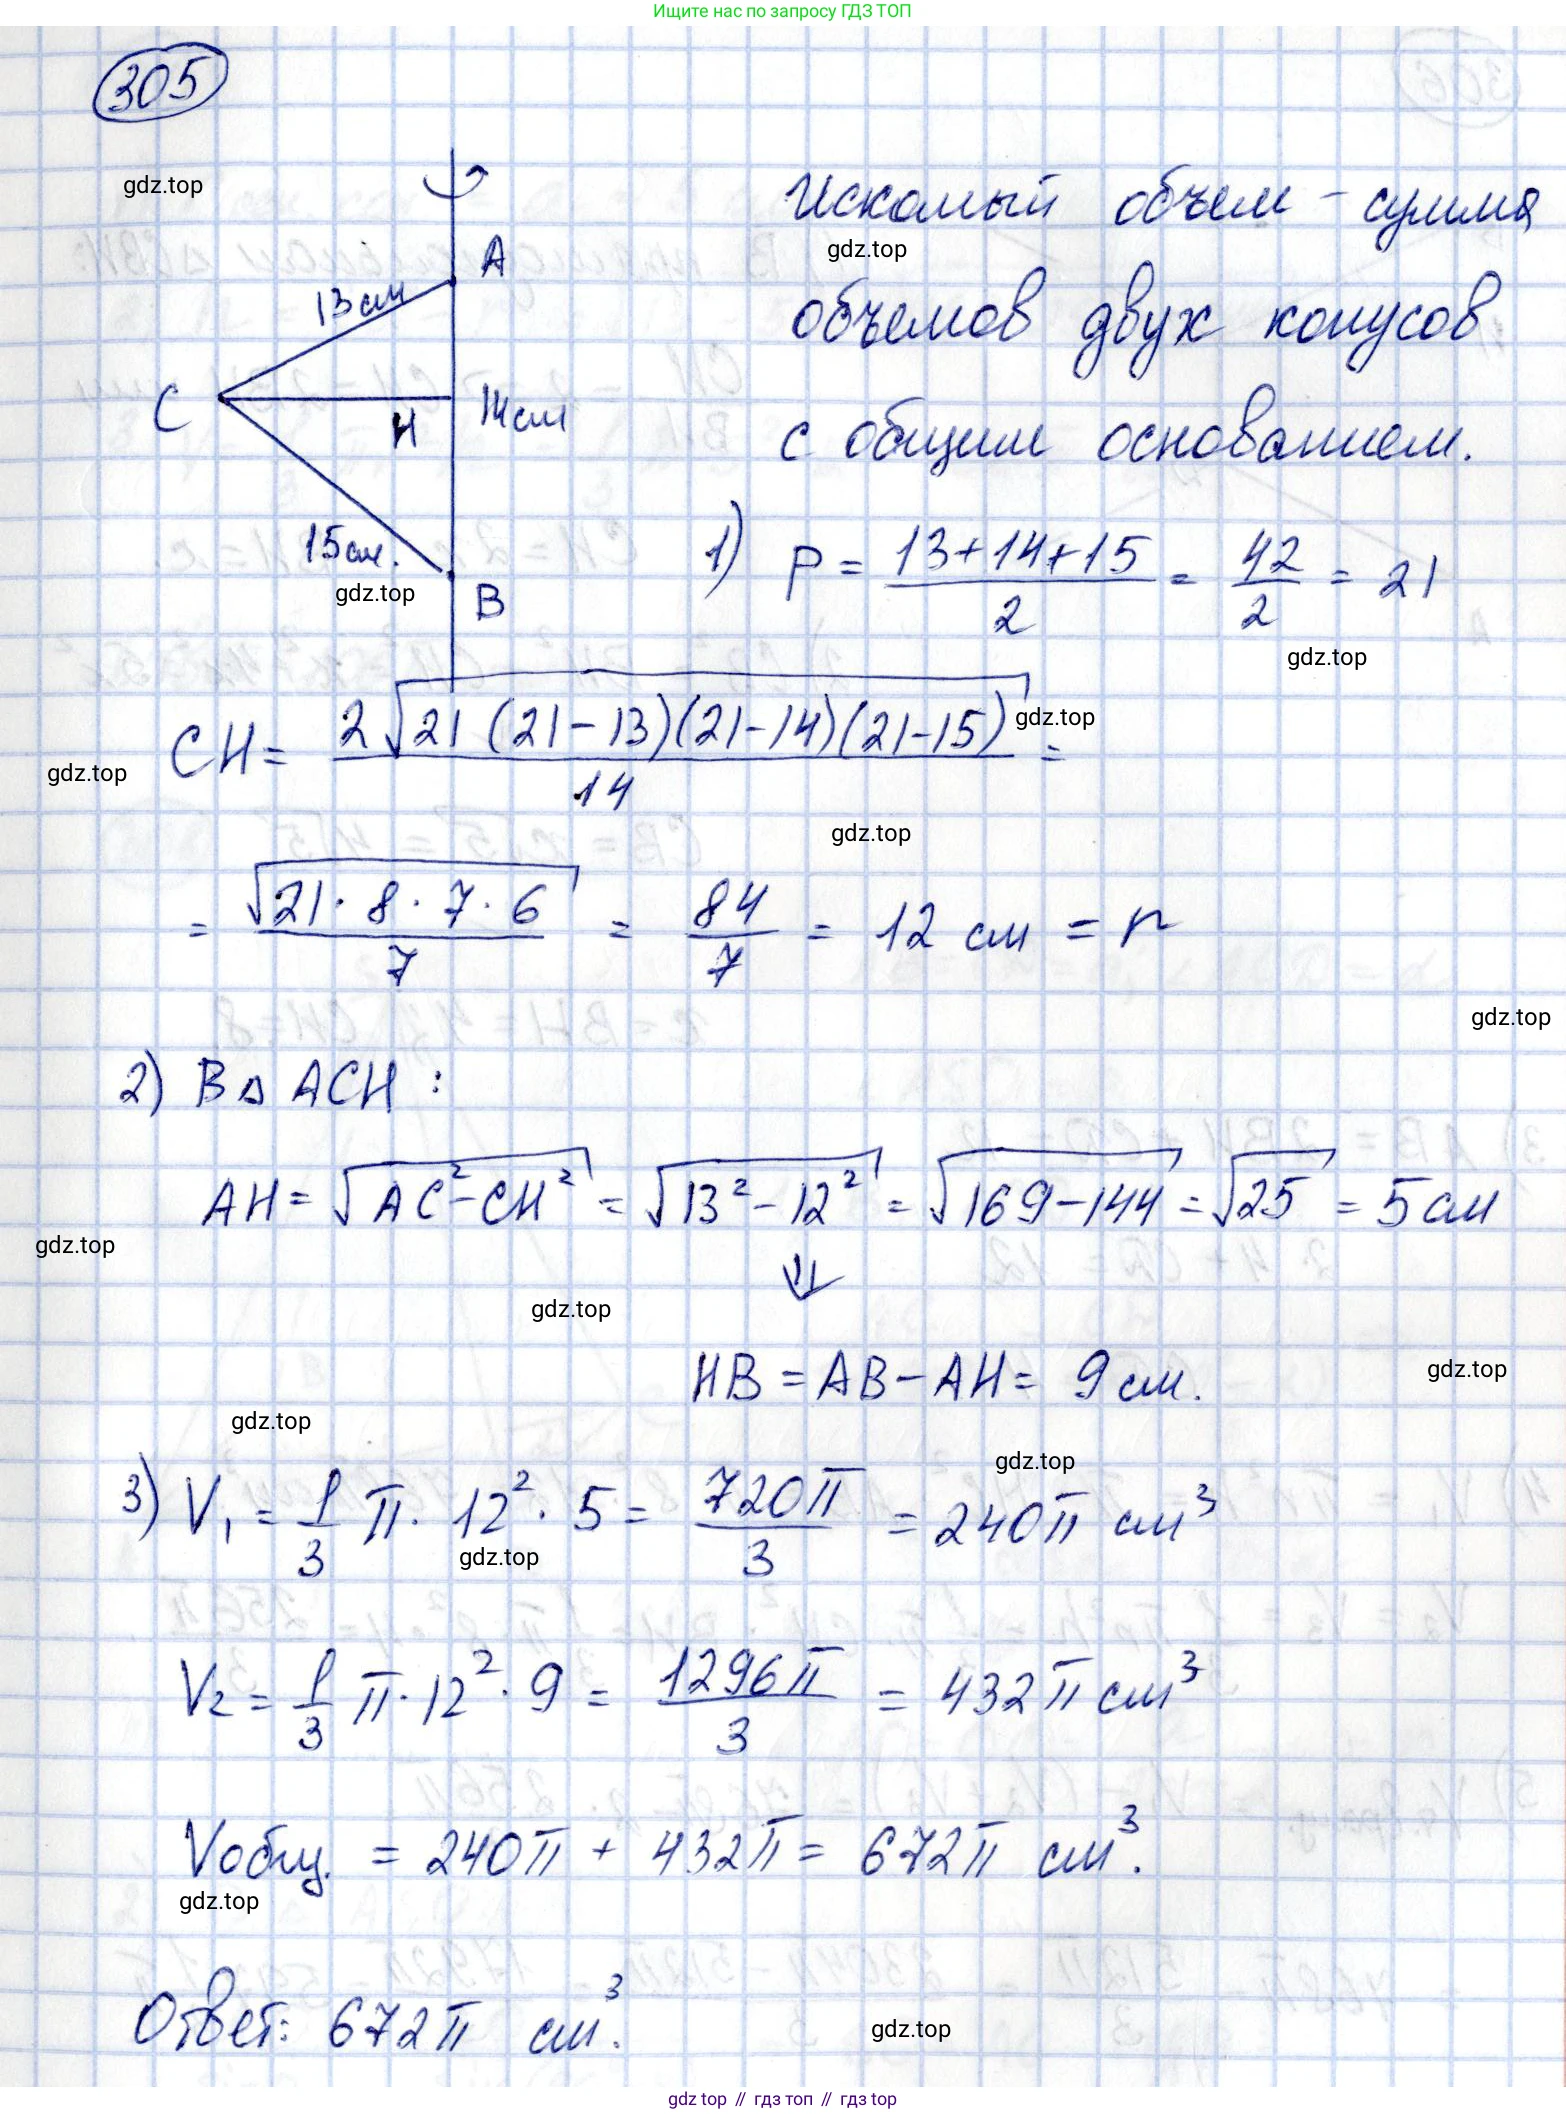 Ищите нас по запросу ГДЗ ТОП
305
gdz.top
A
13 см
C
H
14 см
15 см.
gdz.top
B
Искомый объем - сумма
gdz.top
объемов двух конусов
с общим основанием.
1) P = (13+14+15)/2 = 42/2 = 21
gdz.top
CH = 2√(21 (21-13)(21-14)(21-15))/14 =
gdz.top
gdz.top
gdz.top
= √(21·8·7·6)/7 = 84/7 = 12 см = r
gdz.top
2) В △ ACH :
AH = √(AC²-CH²) = √(13²-12²) = √(169-144) = √25 = 5 см
gdz.top
⇓
gdz.top
HB = AB - AH = 9 см.
gdz.top
gdz.top
gdz.top
3) V₁ = 1/3 π · 12² · 5 = 720π/3 = 240π см³
gdz.top
V₂ = 1/3 π · 12² · 9 = 1296π/3 = 432π см³
Vобщ. = 240π + 432π = 672π см³.
gdz.top
Ответ: 672π см³.
gdz.top
gdz top // гдз топ // gdz top